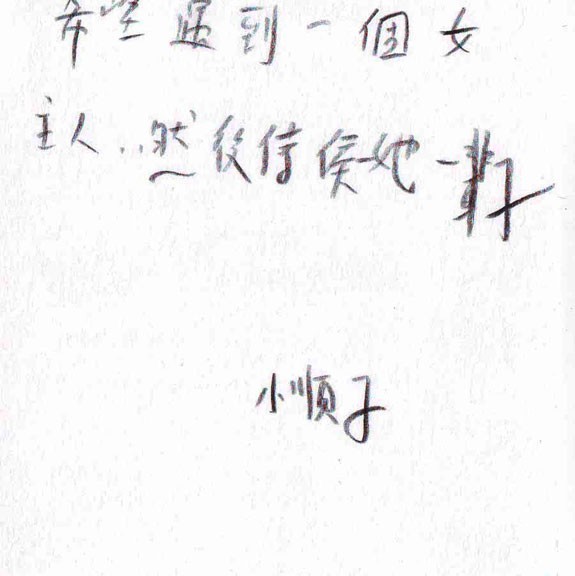 希望遇到一個女
主人..然後侍侯她一輩子
小順子